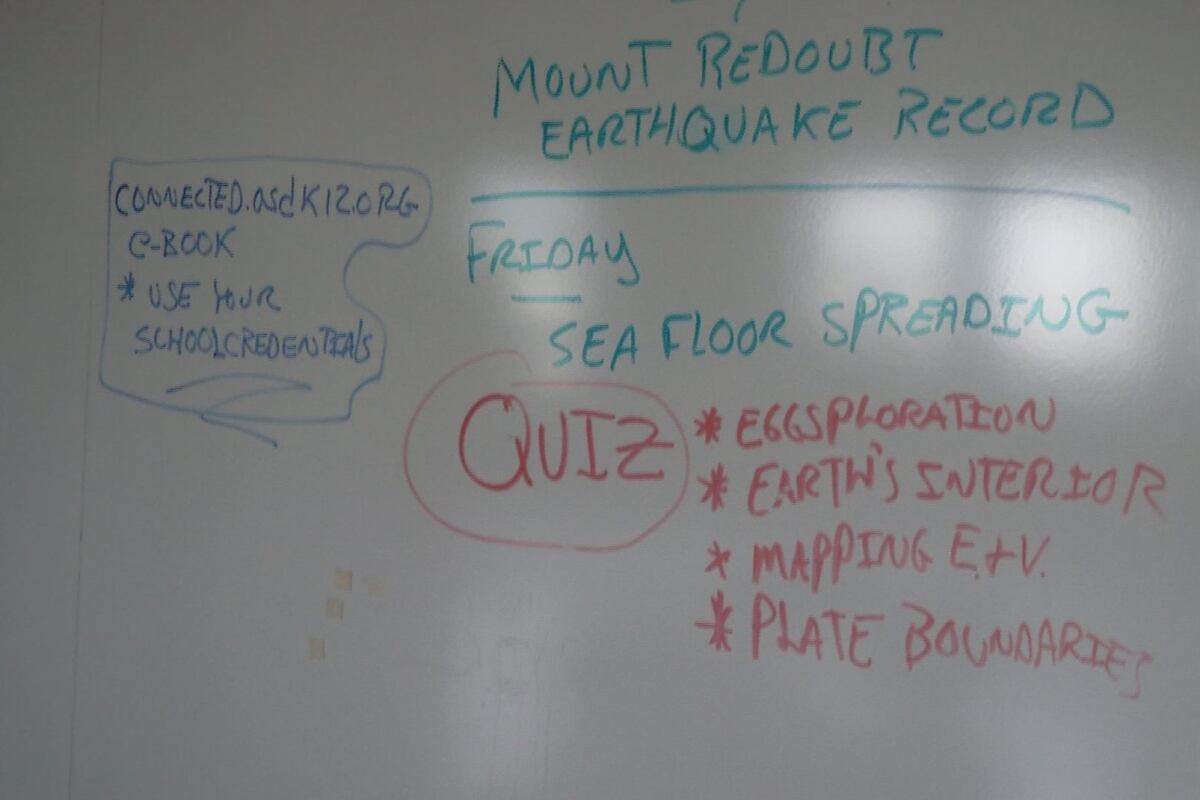 MOUNT REDOUBT
EARTHQUAKE RECORD
CONNECTED.asdK12.ORG
e-BOOK
* USE YOUR
SCHOOL CREDENTIALS
FRIDAY
SEA FLOOR SPREADING
QUIZ
* EGGSPLORATION
* EARTH'S INTERIOR
* MAPPING E.+V.
* PLATE BOUNDARIES